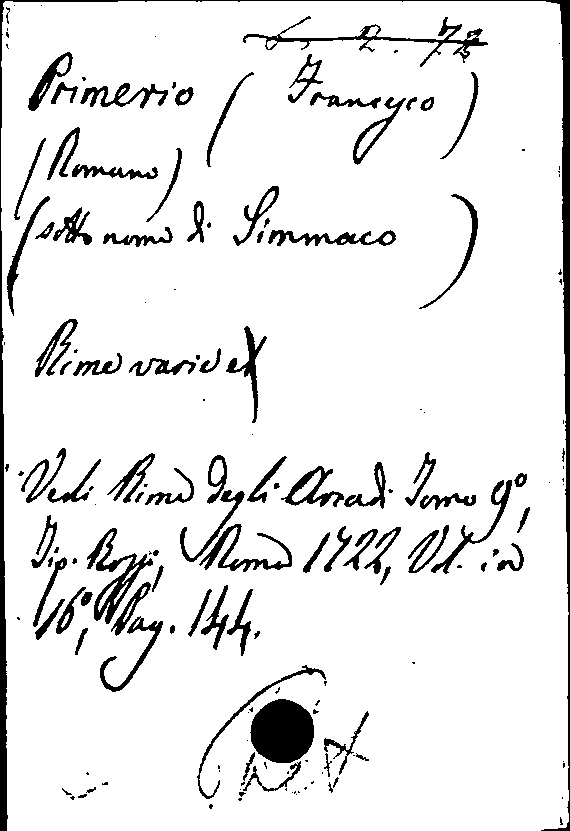 6. 2. 73
Primerio ( Francesco )
( Romano )
( sotto nome di Simmaco )
Rime varie
Vedi Rime degli Arcadi Tomo 9º,
Tip. Rossi, Roma 1722, Vol. in
16º, Pag. 144.